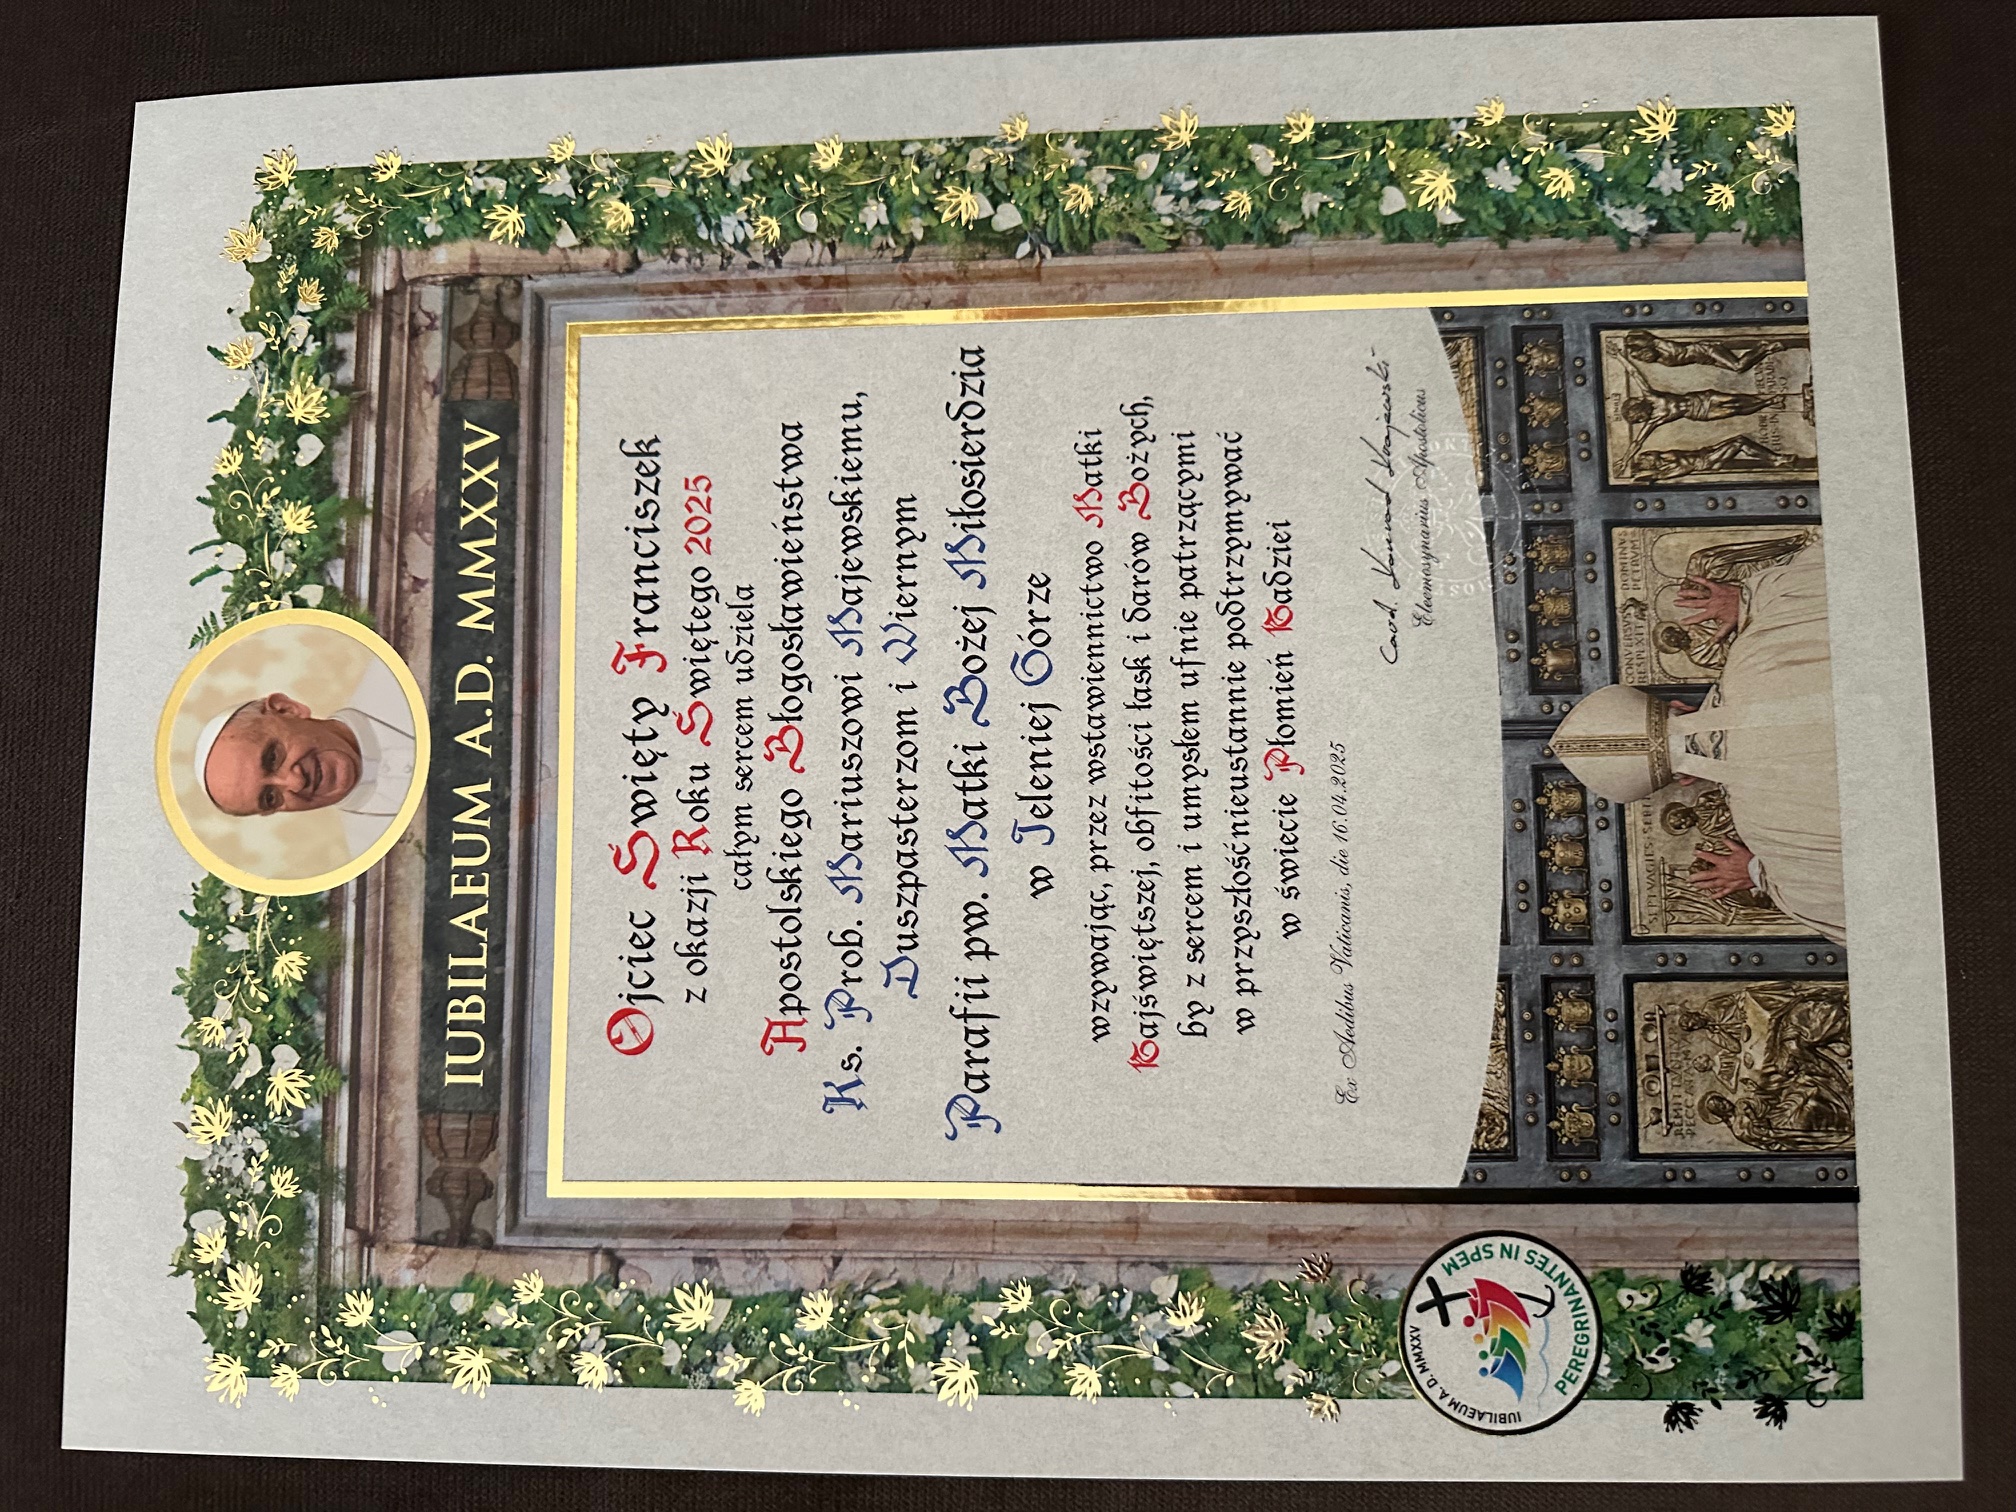 IUBILAEUM A.D. MMXXV
Ojciec Święty Franciszek
z okazji Roku Świętego 2025
całym sercem udziela
Apostolskiego Błogosławieństwa
Ks. Prob. Mariuszowi Majewskiemu,
Duszpasterzom i Wiernym
Parafii pw. Matki Bożej Miłosierdzia
w Jeleniej Górze
wzywając, przez wstawiennictwo Matki
Najświętszej, obfitości łask i darów Bożych,
by z sercem i umysłem ufnie patrzącymi
w przyszłość nieustannie podtrzymywać
w świecie Płomień Nadziei
Ex Aedibus Vaticanis, die 16.04.2025
Card. Konrad Krajewski
Eleemosynarius Apostolicus
IUBILAEUM A.D. MMXXV
PEREGRINANTES IN SPEM
SEPTUAGIES SEPTIES
CONVERSUS DOMINUS
RESPEXIT PETRUM